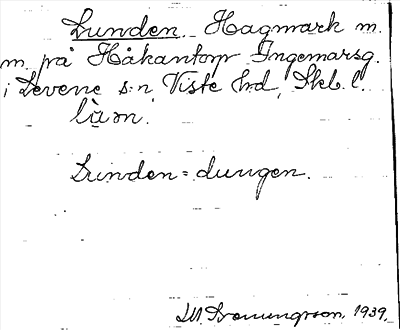 Lunden. Hagmark m.
m. på Håkantorp Ingemarsg.
i Levene s:n, Viste hd, Skb. l.
làm.
Lunden = dungen.
1939.